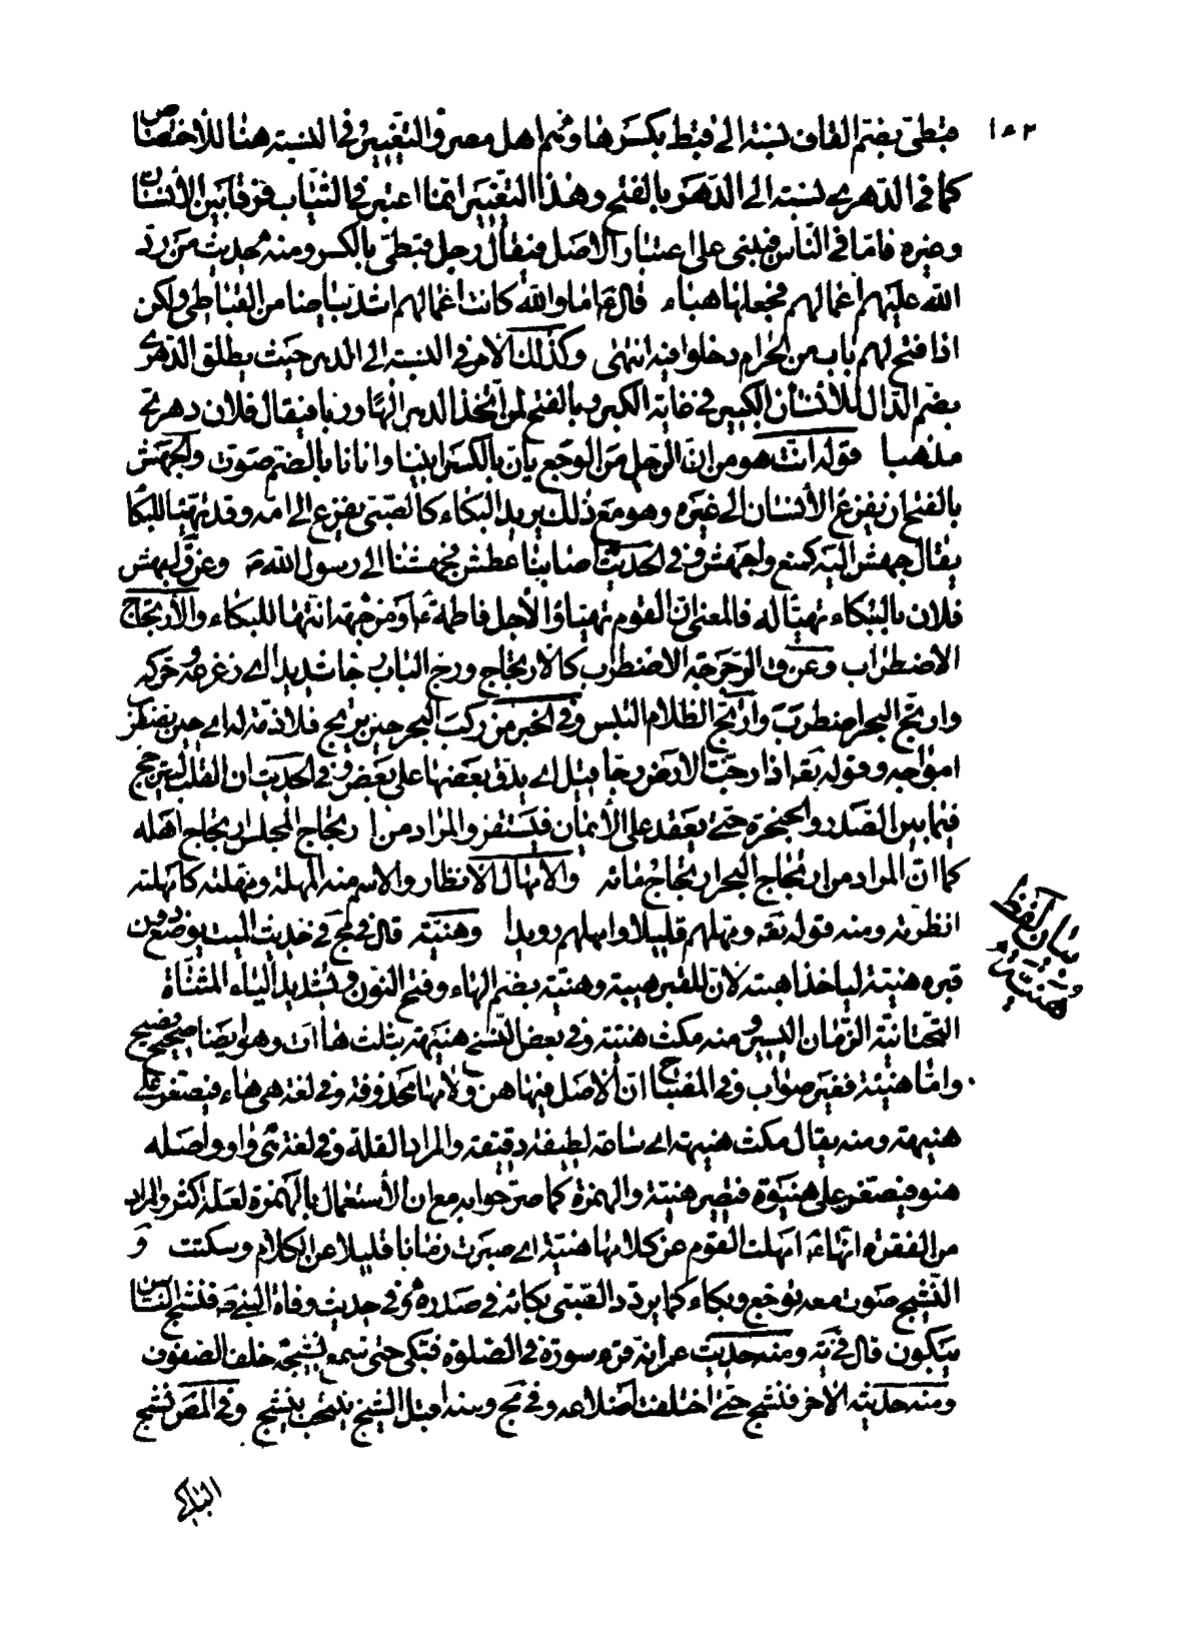 ١٠٢
قبطى بضم القاف نسبته الى قبط بكسرها ومنهم اهل مصر والتغيير فى النسبة هنا للأختصاص
كما فى الدهرى نسبته الى الدهر بالفتح وهذا التغيير انما اعتبر فى الثياب فرقا بين الأنسان
وغيره فاما فى الناس فيبنى على اعتبار الاصل فيقال رجل قبطى بالكسر ومنه حديث من رد
الله عليهم اعمالهم فجعلها هباء قال ع اما والله كانت اعمالهم اشد بياضا من القباطى ولكن
اذا فتح لهم باب من الحرام دخلوا فيه انتهى وكذلك الامر فى النسبة الى الدهر حيث يطلق الدهرى
بضم الدال للأنسان الكبير فى غاية الكبر وبالفتح لمن اتخذ الدهر الها وربا فيقال فلان دهرى
مذهبا قوله انت هو من ان الرجل من الوجع يأن بالكسر انينا وانانا بالضم صوت والجهش
بالفتح ان يفزع الأنسان الى غيره وهو مع ذلك يريد البكاء كالصبى يفزع الى امه وقد تهيا للبكا
يقال جهش اليه كمنع واجهش وفى الحديث اصابنا عطش فجهشنا الى رسول الله ص وعن ق اجهش
فلان بالبكاء تهيا له فالمعنى ان القوم تهياؤا لأجل فاطمة ع ومن جهة انتها للبكاء والأرتجاج
الاضطراب وعن ق الرجرجة الاضطراب كالارتجاج ورج الباب رجا شديدا اى زعزعه وحركه
وارتج البحر اضطرب وارتج الظلام التبس وفى الخبر من ركب البحر حين يرتج فلا ذمة له اى حين يضطرب
امواجه وقوله تعه اذا رجت الارض رجا قيل اى يدق بعضها على بعض وفى الحديث ان القلب ليترجج
فيما بين الصدر والحنجرة حتى يعقد على الأيمان فيستقر والمراد من ارتجاج المجلس ارتجاج اهله
كما ان المراد من ارتجاج البحر ارتجاج مائه والامهال الانظار والاسم منه المهلة ومهلته كامهلته
انظرته ومنه قوله تعه ومهلهم قليلا وامهلهم رويدا وهنيئة قال فى مج فى حديث الميت يوضع دون
قبره هنيئة لياخذ اهبته لان للقبر هيبة وهنية بضم الهاء وفتح النون وتشديد الياء المثناة
التحتانية الزمان اليسير ومنه مكث هنيئة وفى بعض النسخ هنيهة بثلث هاآت وهو ايضا صحيح فصيح
واما هنيئة فغير صواب وفى المصباح ان الاصل فيها هن ولامها محذوفة وفى لغة هى هاء فيصغر على
هنيهة ومنه يقال مكث هنيهة اى ساعة لطيفة دقيقة والمراد القلة وفى لغة هى واو واصله
هنو فيصغر على هنيوة فتصير هنية والهمزة كما صرحوا به مع ان الأستعمال بالهمزة لعله اكثر والمراد
من الفقرة انها ع امهلت القوم عن كلامها هنيئة اى صبرت زمانا قليلا عن الكلام وسكتت و
النشيج صوت معه توجع وبكاء كما يردد الصبى بكائه فى صدره وفى حديث وفاة النبى ص فنشج الناس
يبكون قال فى يه ومنه حديث عمر انه قرء سورة فى الصلوة فبكى حتى سمع نشيجه خلف الصفوف
ومنه حديثه الآخر فنشج حتى اختلفت اضلاعه وفى مج ومنه اقبل الشيخ ينتحب ينشج وفى المقر نشج
بيان لفظ
هنيئة
الباكى